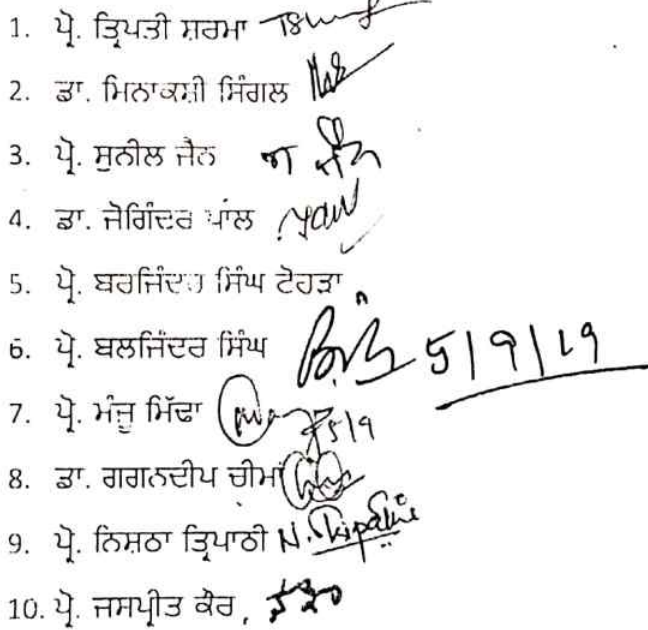 1. ਪ੍ਰੋ. ਤ੍ਰਿਪਤੀ ਸ਼ਰਮਾ
2. ਡਾ. ਮਿਨਾਕਸ਼ੀ ਸਿੰਗਲ
3. ਪ੍ਰੋ. ਸੁਨੀਲ ਜੈਨ
4. ਡਾ. ਜੋਗਿੰਦਰ ਪਾਲ
5. ਪ੍ਰੋ. ਬਰਜਿੰਦਰ ਸਿੰਘ ਟੋਹੜਾ
6. ਪ੍ਰੋ. ਬਲਜਿੰਦਰ ਸਿੰਘ 5/9/19
7. ਪ੍ਰੋ. ਮੰਜੂ ਮਿੱਢਾ 5/9
8. ਡਾ. ਗਗਨਦੀਪ ਚੀਮਾਂ
9. ਪ੍ਰੋ. ਨਿਸ਼ਠਾ ਤ੍ਰਿਪਾਠੀ N. Tripathi
10. ਪ੍ਰੋ. ਜਸਪ੍ਰੀਤ ਕੌਰ,